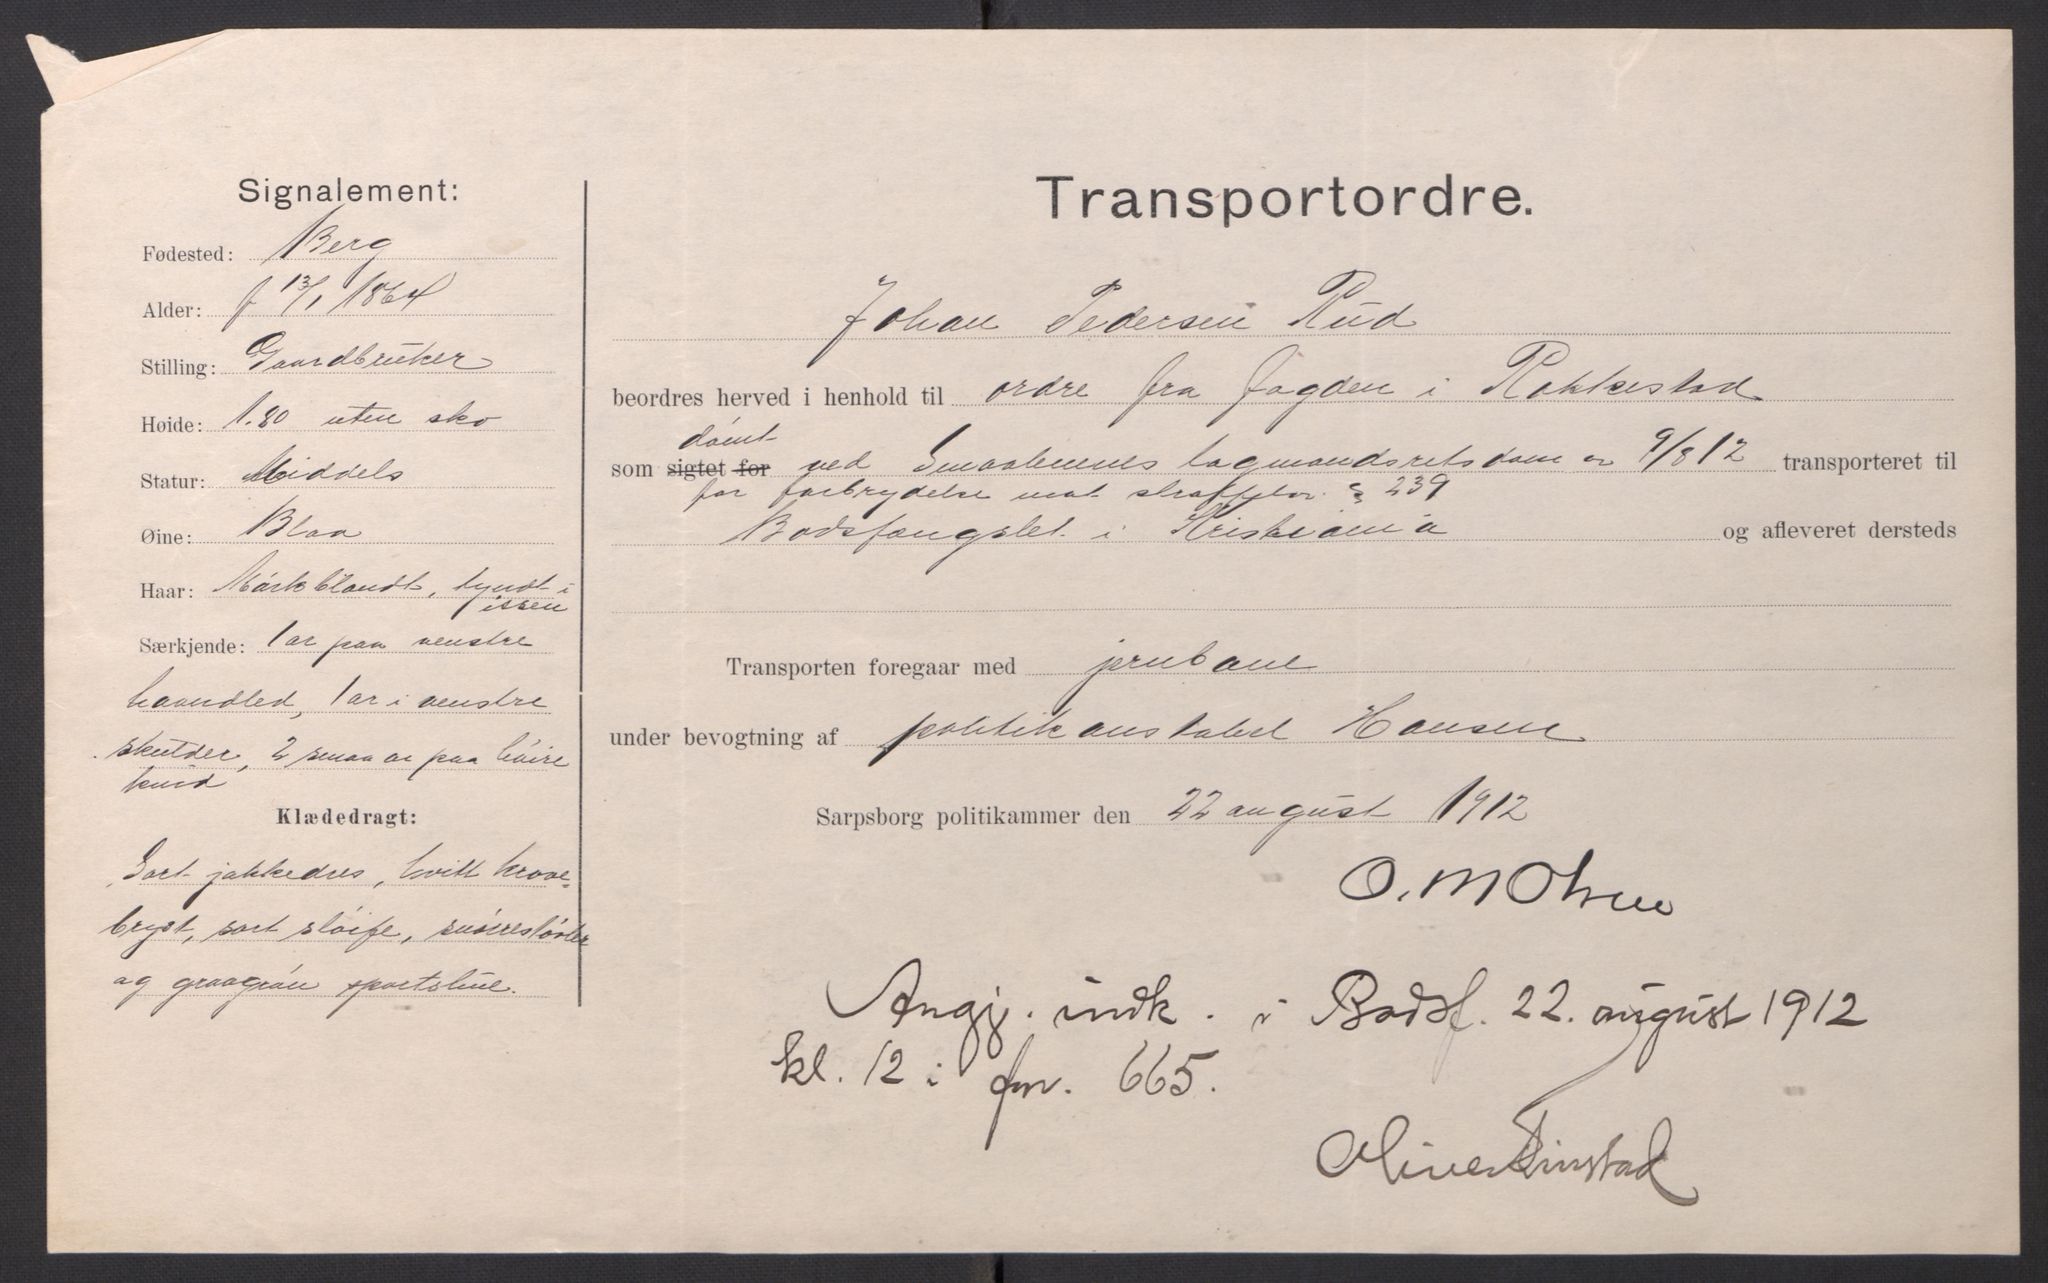 Signalement:
Fødested: Berg
Alder: f 13/1 1864
Stilling: Gaardbruker
Høide: 1.80 uten sko
Statur: Middels
Øine: Blaa
Haar: Mørkblandt, tyndt i
issen
Særkjende: 1 ar paa venstre
haandled, 1 ar i venstre
skulder, 2 smaa ar paa høire
kind
Klædedragt:
Sort jakkedres, hvitt krave-
bryst, sort sløife, snørestøvler
og graagrøn sportslue.
Transportordre.
Johan Pedersen Rud
beordres herved i henhold til ordre fra fogden i Rakkestad
dømt
som sigtet for ved Smaalenenes lagmandsretsdom av 9/8 12 transporteret til
for forbrydelse mot straffelov. § 239
Bodsfængslet i Kristiania og afleveret dersteds
Transporten foregaar med jernbane
under bevogtning af politikonstabel Hansen
Sarpsborg politikammer den 22 august 1912
O. M Olsen
Angj. indk. i Bodsf. 22. august 1912
kl. 12 i fm. 665.
Oliver Finstad